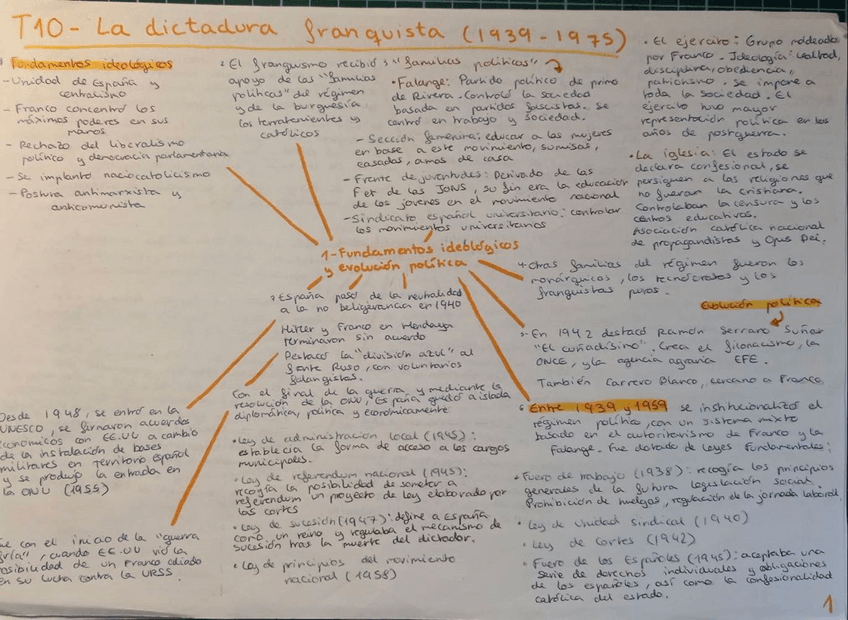 T10 - La dictadura franquista (1939-1975)
Fundamentos ideológicos
- Unidad de España y
centralismo
- Franco concentró los
máximos poderes en sus
manos
- Rechazo del liberalismo
político y democracia parlamentaria
- Se implantó naciocatolicismo
- Postura antimarxista y
anticomunista
2 El franquismo recibió
apoyo de las "familias
políticas" del régimen
y de la burguesía
los terratenientes y
católicos
3 "familias políticas"
• Falange: Partido político de primo
de Rivera. Controló la sociedad
basada en partidos fascistas. Se
centró en trabajo y sociedad.
- Sección femenina: educar a las mujeres
en base a este movimiento, sumisas,
casadas, amas de casa
- Frente de juventudes: Derivado de las
Fet de las JONS, su fin era la educación
de los jovenes en el movimiento nacional
- Sindicato español universitario: controlar
los movimientos universitarios
• El ejercito: Grupo rodeado
por Franco. Ideología: lealtad,
disciplina, obediencia,
patriotismo. Se impone a
toda la sociedad. El
ejercito tuvo mayor
representación política en los
años de postguerra.
• La iglesia: El estado se
declara confesional, se
persiguen a las religiones que
no fueran la cristiana.
Controlaban la censura y los
centros educativos.
Asociación católica nacional
de propagandistas y Opus Dei.
1- Fundamentos ideológicos
y evolución política
4 Otras familias del régimen fueron los
monárquicos, los tecnócratas y los
franquistas puros.
Evolución política
En 1942 destacó Ramón Serrano Suñer
"El cuñadísimo". Crea el filonacismo, la
ONCE, y la agencia agraria EFE.
También Carrero Blanco, cercano a Franco
6 Entre 1939 y 1959 se institucionalizó el
régimen político, con un sistema mixto
basado en el autoritarismo de Franco y la
Falange. Fue dotado de leyes Fundamentales:
• Fuero de trabajo (1938): recogía los principios
generales de la futura legislación social.
Prohibición de huelgas, regulación de la jornada laboral
• Ley de Unidad Sindical (1940)
• Ley de Cortes (1942)
• Fuero de los Españoles (1945): aceptaba una
serie de derechos individuales y obligaciones
de los españoles, así como la confesionalidad
católica del estado.
7 España pasó de la neutralidad
a la no beligerancia en 1940
Hitler y Franco en Hendaya
terminaron sin acuerdo
Destacó la "división azul" al
frente Ruso, con voluntarios
falangistas.
Con el final de la guerra, y mediante la
resolución de la ONU, España quedó aislada
diplomática, política y económicamente
• Ley de administración local (1945):
establecía la forma de acceso a los cargos
municipales.
• Ley de referendum nacional (1945):
recogía la posibilidad de someter a
referendum un proyecto de ley elaborado por
las cortes
• Ley de sucesión (1947): define a España
como un reino y regulaba el mecanismo de
sucesión tras la muerte del dictador.
• Ley de principios del movimiento
nacional (1958)
Desde 1948, se entró en la
UNESCO, se firmaron acuerdos
económicos con EE.UU a cambio
de la instalación de bases
militares en territorio español
y se produjo la entrada en
la ONU (1955)
ue con el inicio de la "guerra
fría", cuando EE.UU vió la
posibilidad de un Franco aliado
en su lucha contra la URSS.
1